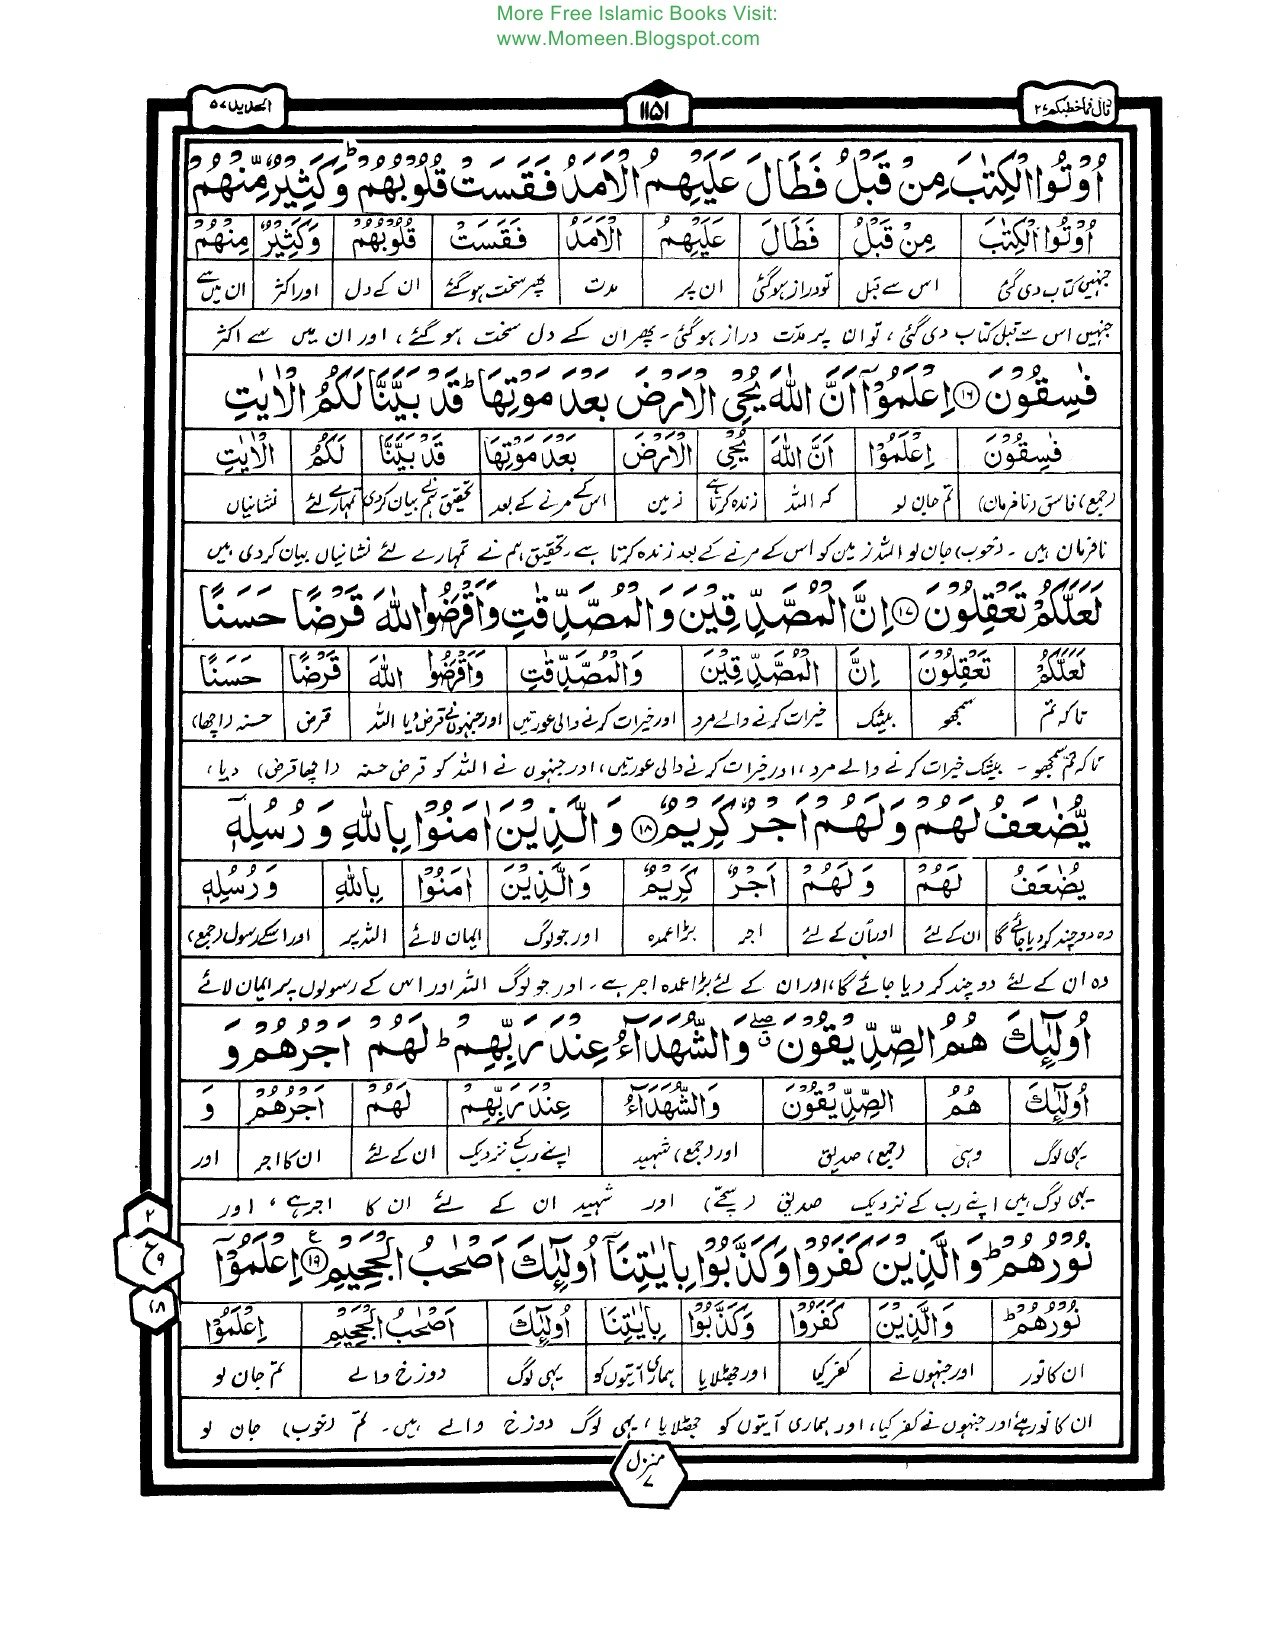 More Free Islamic Books Visit:
www.Momeen.Blogspot.com
قال فما خطبکم ۲۷
۱۱۵۱
الحدید ۵۷
اُوْتُوا الْكِتٰبَ مِنْ قَبْلُ فَطَالَ عَلَيْهِمُ الْاَمَدُ فَقَسَتْ قُلُوْبُهُمْ ؕ وَكَثِيْرٌ مِّنْهُمْ
اُوْتُوا الْكِتٰبَ مِنْ قَبْلُ فَطَالَ عَلَيْهِمُ الْاَمَدُ فَقَسَتْ قُلُوْبُهُمْ وَكَثِيْرٌ مِنْهُمْ
جنہیں کتاب دی گئی اس سے قبل تو دراز ہو گئی ان پر مدت پھر سخت ہو گئے ان کے دل اور اکثر ان میں سے
جنہیں اس سے قبل کتاب دی گئی، تو ان پر مدّت دراز ہو گئی۔ پھر ان کے دل سخت ہو گئے، اور ان میں سے اکثر
فٰسِقُوْنَ ۱۶ اِعْلَمُوْۤا اَنَّ اللّٰهَ يُحْيِ الْاَرْضَ بَعْدَ مَوْتِهَا ؕ قَدْ بَيَّنَّا لَكُمُ الْاٰيٰتِ
فٰسِقُوْنَ اِعْلَمُوْا اَنَّ اللّٰهَ يُحْيِ الْاَرْضَ بَعْدَ مَوْتِهَا قَدْ بَيَّنَّا لَكُمُ الْاٰيٰتِ
(جمع) فاسق (نافرمان) تم جان لو کہ اللہ زندہ کرتا ہے زمین اس کے مرنے کے بعد تحقیق ہم نے بیان کر دی تمہارے لئے نشانیاں
نافرمان ہیں۔ (خوب) جان لو اللہ زمین کو اس کے مرنے کے بعد زندہ کرتا ہے، تحقیق ہم نے تمہارے لئے نشانیاں بیان کر دی ہیں
لَعَلَّكُمْ تَعْقِلُوْنَ ۱۷ اِنَّ الْمُصَّدِّقِيْنَ وَالْمُصَّدِّقٰتِ وَاَقْرَضُوا اللّٰهَ قَرْضًا حَسَنًا
لَعَلَّكُمْ تَعْقِلُوْنَ اِنَّ الْمُصَّدِّقِيْنَ وَالْمُصَّدِّقٰتِ وَاَقْرَضُوا اللّٰهَ قَرْضًا حَسَنًا
تاکہ تم سمجھو بیشک خیرات کرنے والے مرد اور خیرات کرنے والی عورتیں اور جنہوں نے قرض دیا اللہ قرض حسنہ (اچھا)
تاکہ تم سمجھو۔ بیشک خیرات کرنے والے مرد، اور خیرات کرنے والی عورتیں، اور جنہوں نے اللہ کو قرض حسنہ (اچھا قرض) دیا،
يُّضٰعَفُ لَهُمْ وَلَهُمْ اَجْرٌ كَرِيْمٌ ۱۸ وَالَّذِيْنَ اٰمَنُوْا بِاللّٰهِ وَرُسُلِهٖۤ
يُضٰعَفُ لَهُمْ وَلَهُمْ اَجْرٌ كَرِيْمٌ وَالَّذِيْنَ اٰمَنُوْا بِاللّٰهِ وَرُسُلِهٖ
وہ دو چند کر دیا جائے گا ان کے لئے اور ان کے لئے اجر بڑا عمدہ اور جو لوگ ایمان لائے اللہ پر اور اسکے رسول (جمع)
وہ ان کے لئے دو چند کر دیا جائے گا، اور ان کے لئے بڑا عمدہ اجر ہے۔ اور جو لوگ اللہ اور اس کے رسولوں پر ایمان لائے
اُولٰٓئِكَ هُمُ الصِّدِّيْقُوْنَ ۖ وَالشُّهَدَآءُ عِنْدَ رَبِّهِمْ ؕ لَهُمْ اَجْرُهُمْ وَ
اُولٰٓئِكَ هُمُ الصِّدِّيْقُوْنَ وَالشُّهَدَآءُ عِنْدَ رَبِّهِمْ لَهُمْ اَجْرُهُمْ وَ
یہی لوگ وہی (جمع) صدیق اور (جمع) شہید اپنے رب کے نزدیک ان کے لئے ان کا اجر اور
یہی لوگ ہیں اپنے رب کے نزدیک صدیق (سچّے) اور شہید ان کے لئے ان کا اجر ہے، اور
نُوْرُهُمْ ؕ وَالَّذِيْنَ كَفَرُوْا وَكَذَّبُوْا بِاٰيٰتِنَاۤ اُولٰٓئِكَ اَصْحٰبُ الْجَحِيْمِ ۱۹ اِعْلَمُوْۤا
نُوْرُهُمْ ؕ وَالَّذِيْنَ كَفَرُوْا وَكَذَّبُوْا بِاٰيٰتِنَا اُولٰٓئِكَ اَصْحٰبُ الْجَحِيْمِ اِعْلَمُوْا
ان کا نور اور جنہوں نے کفر کیا اور جھٹلایا ہماری آیتوں کو یہی لوگ دوزخ والے تم جان لو
ان کا نور ہے، اور جنہوں نے کفر کیا، اور ہماری آیتوں کو جھٹلایا، یہی لوگ دوزخ والے ہیں۔ تم (خوب) جان لو
۲
ع ۹
۱۸
منزل ۷